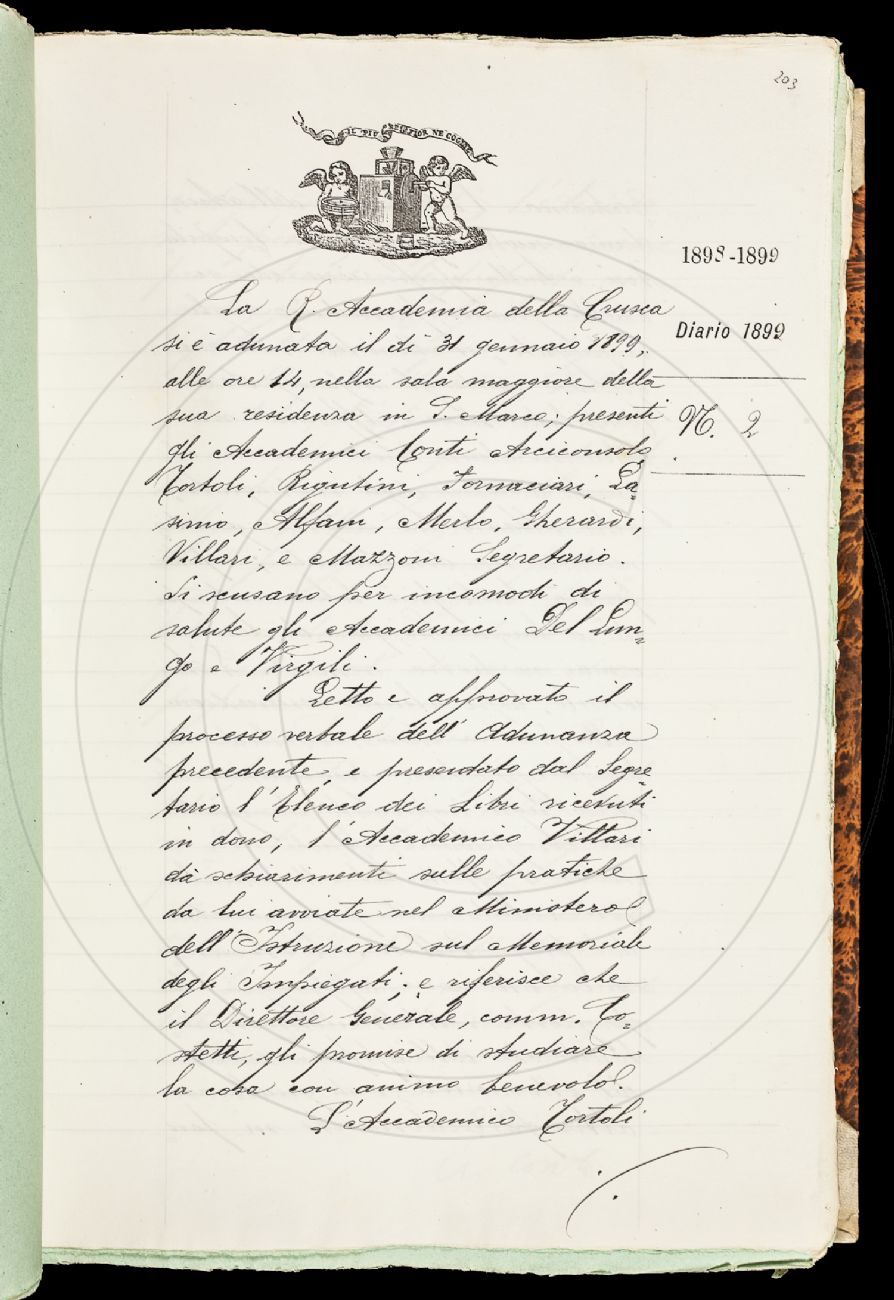 203
IL PIÙ BEL FIOR NE COGLIE
1898-1899
Diario 1899
N. 2
La R. Accademia della Crusca
si è adunata il dì 31 gennaio 1899,
alle ore 14, nella sala maggiore della
sua residenza in S. Marco; presenti
gli Accademici Conti Arciconsolo
Tortoli, Rigutini, Fornaciari, La=
sinio, Alfani, Merlo, Gherardi,
Villari, e Mazzoni Segretario.
Si scusano per incomodi di
salute gli Accademici Del Lun=
go e Virgili.
Letto e approvato il
processo verbale dell'Adunanza
precedente, e presentato dal Segre=
tario l'Elenco dei Libri ricevuti
in dono, l'Accademico Villari
dà schiarimenti sulle pratiche
da lui avviate nel Ministero
dell'Istruzione sul Memoriale
degli Impiegati; e riferisce che
il Direttore Generale, comm. Co=
stetti, gli promise di studiare
la cosa con animo benevolo.
L'Accademico Tortoli